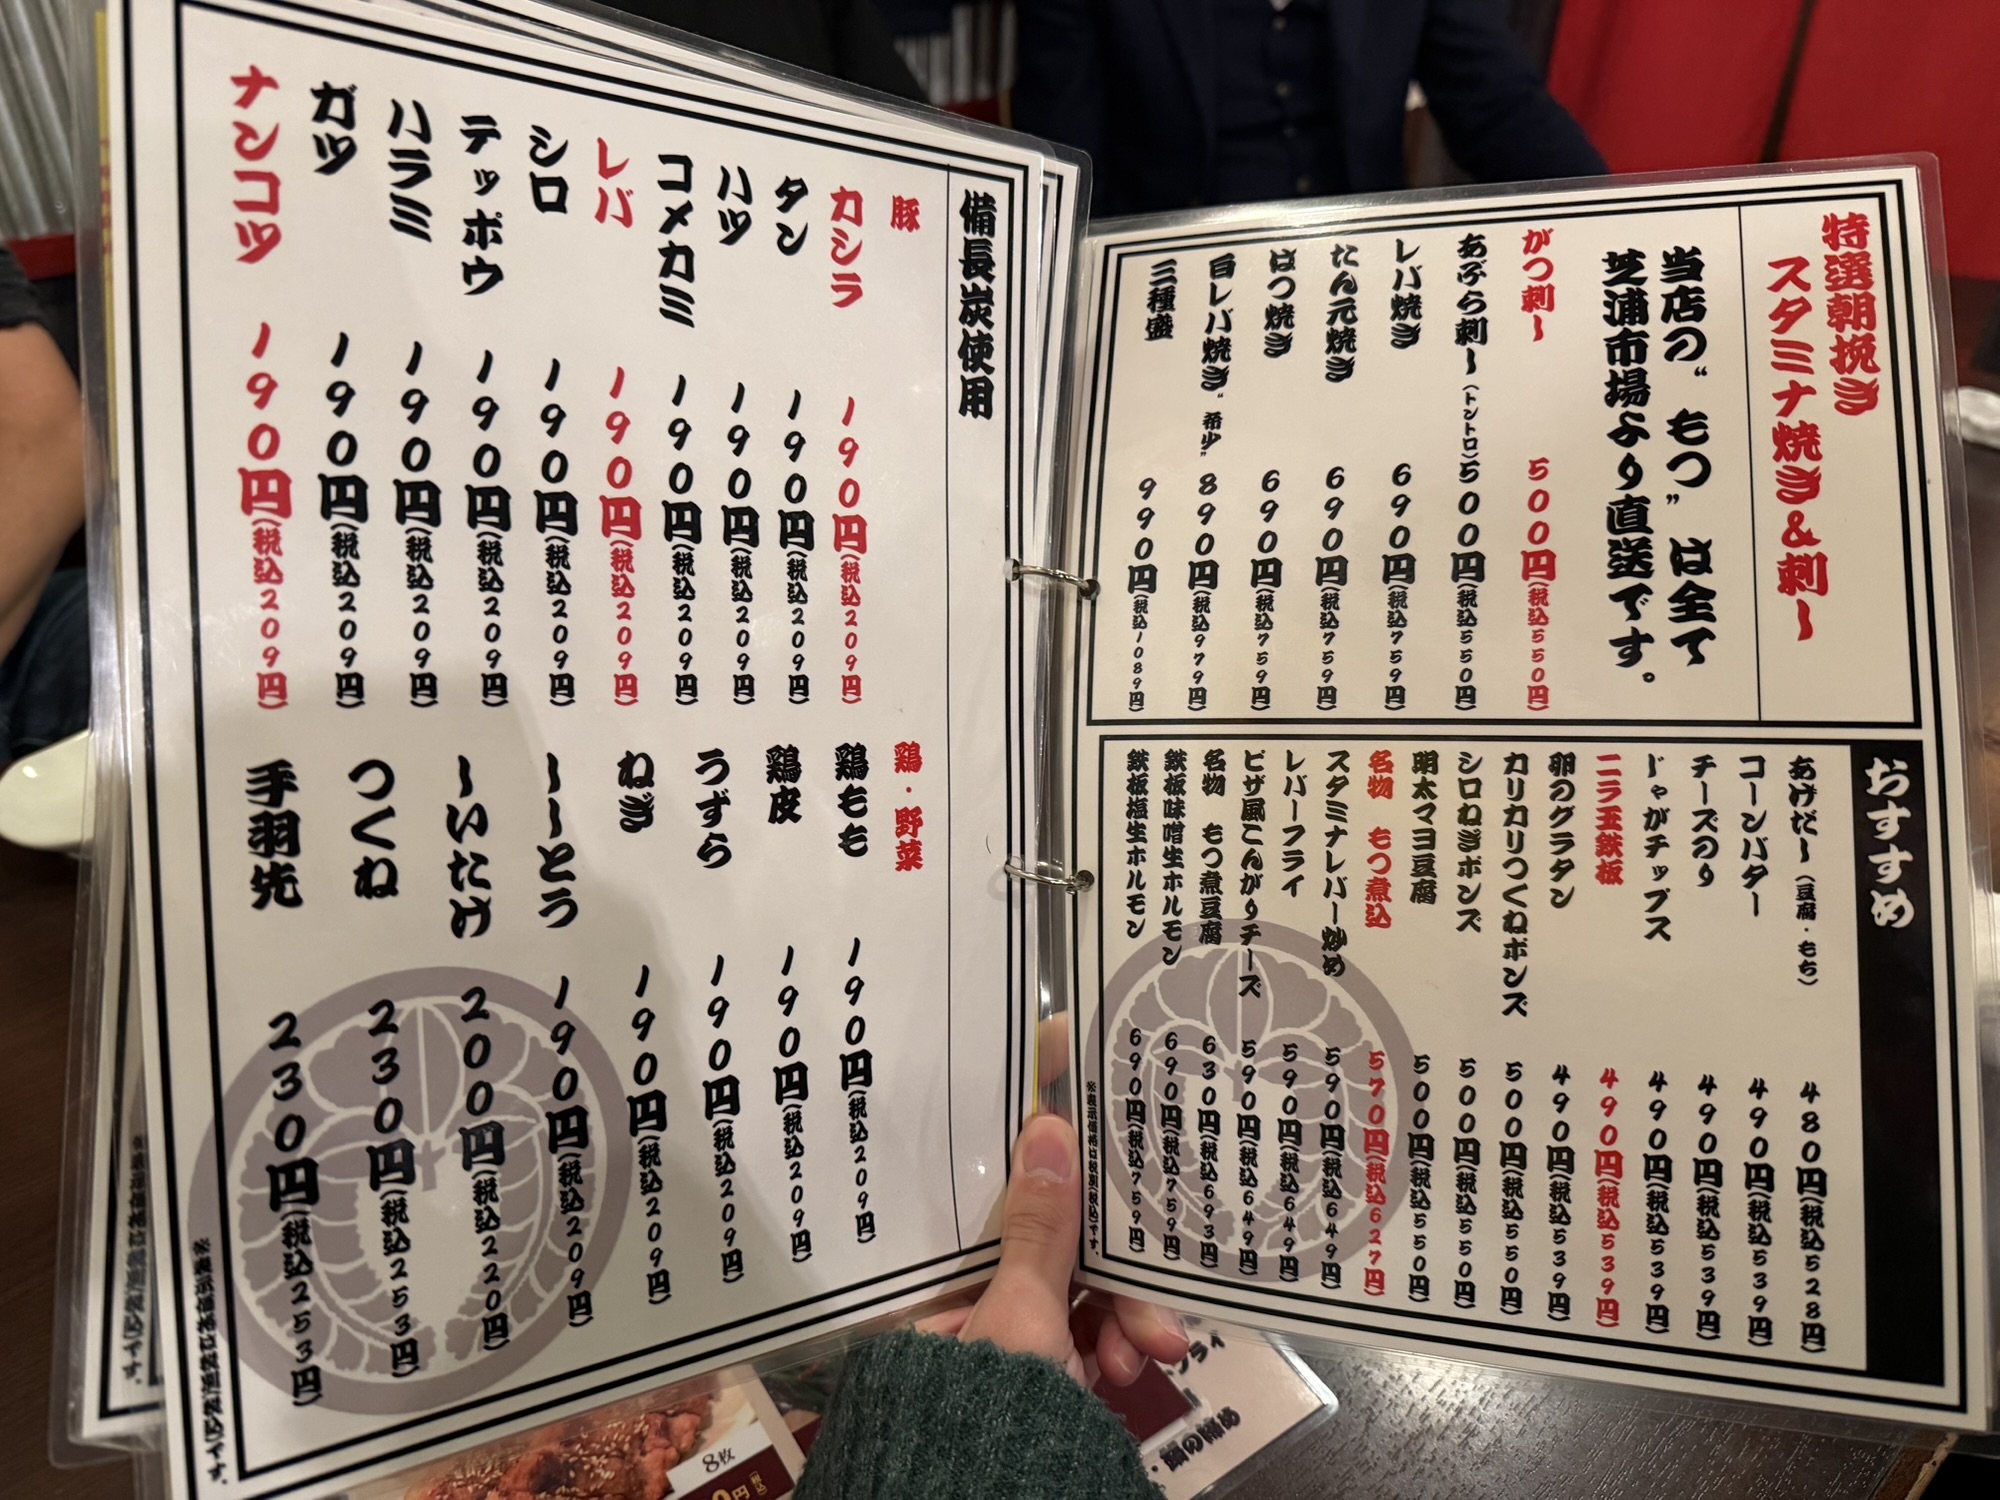 特選朝挽き
スタミナ焼き&刺し
当店の“もつ”は全て
芝浦市場より直送です。
がつ刺し 500円(税込550円)
あぶら刺し(トントロ) 500円(税込550円)
レバ焼き 690円(税込759円)
たん元焼き 690円(税込759円)
はつ焼き 690円(税込759円)
白レバ焼き“希少” 890円(税込979円)
三種盛 990円(税込1089円)
おすすめ
あげだし(豆腐・もち) 480円(税込528円)
コーンバター 490円(税込539円)
チーズのり 490円(税込539円)
じゃがチップス 490円(税込539円)
ニラ玉鉄板 490円(税込539円)
卵のグラタン 490円(税込539円)
カリカリつくねポンズ 500円(税込550円)
シロねぎポンズ 500円(税込550円)
明太マヨ豆腐 500円(税込550円)
名物 もつ煮込 570円(税込627円)
スタミナレバー炒め 590円(税込649円)
レバーフライ 590円(税込649円)
ピザ風こんがりチーズ 590円(税込649円)
名物 もつ煮豆腐 630円(税込693円)
鉄板味噌生ホルモン 690円(税込759円)
鉄板塩生ホルモン 690円(税込759円)
※表示価格は税別(税込)です。
備長炭使用
豚
カシラ 190円(税込209円)
タン 190円(税込209円)
ハツ 190円(税込209円)
コメカミ 190円(税込209円)
レバ 190円(税込209円)
シロ 190円(税込209円)
テッポウ 190円(税込209円)
ハラミ 190円(税込209円)
ガツ 190円(税込209円)
ナンコツ 190円(税込209円)
鶏・野菜
鶏もも 190円(税込209円)
鶏皮 190円(税込209円)
うずら 190円(税込209円)
ねぎ 190円(税込209円)
ししとう 190円(税込209円)
しいたけ 200円(税込220円)
つくね 230円(税込253円)
手羽先 230円(税込253円)
※表示価格は税別(税込)です。
8枚